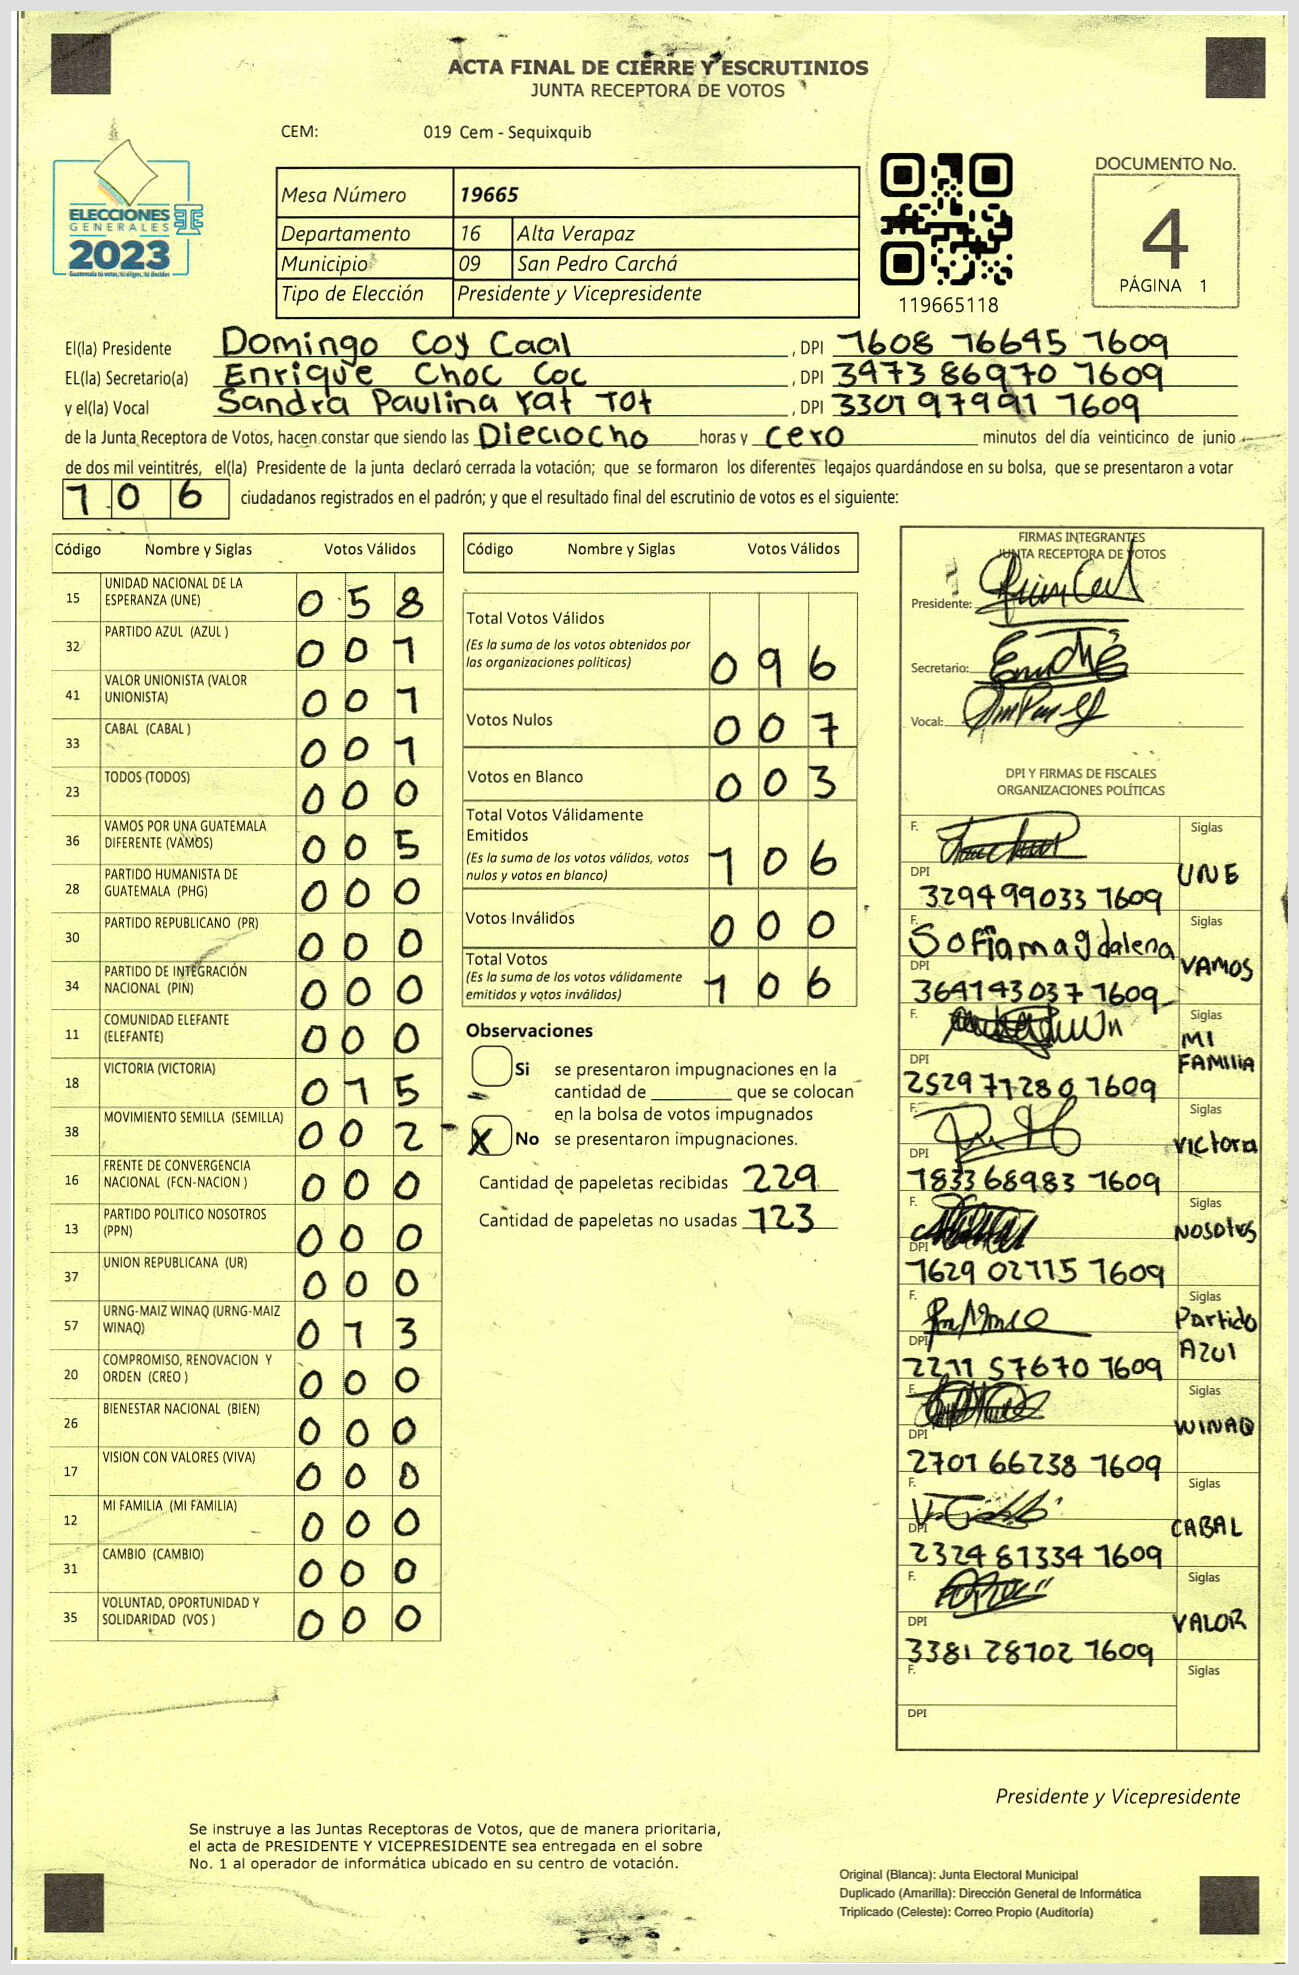 ACTA FINAL DE CIERRE Y ESCRUTINIOS
JUNTA RECEPTORA DE VOTOS
CEM: 019 Cem - Sequixquib
ELECCIONES
GENERALES
2023
Guatemala tu votas, tú eliges, tú decides
Mesa Número 19665
Departamento 16 Alta Verapaz
Municipio 09 San Pedro Carchá
Tipo de Elección Presidente y Vicepresidente
119665118
DOCUMENTO No.
4
PÁGINA 1
El(la) Presidente Domingo Coy Caal , DPI 1608 76645 1609
EL(la) Secretario(a) Enrique Choc Coc , DPI 3473 86970 1609
y el(la) Vocal Sandra Paulina Yat Tot , DPI 3301 97991 1609
de la Junta Receptora de Votos, hacen constar que siendo las Dieciocho horas y cero minutos del día veinticinco de junio
de dos mil veintitrés, el(la) Presidente de la junta declaró cerrada la votación; que se formaron los diferentes legajos guardándose en su bolsa, que se presentaron a votar
1 0 6 ciudadanos registrados en el padrón; y que el resultado final del escrutinio de votos es el siguiente:
Código Nombre y Siglas Votos Válidos
15 UNIDAD NACIONAL DE LA ESPERANZA (UNE) 0 5 8
32 PARTIDO AZUL (AZUL ) 0 0 1
41 VALOR UNIONISTA (VALOR UNIONISTA) 0 0 1
33 CABAL (CABAL ) 0 0 1
23 TODOS (TODOS) 0 0 0
36 VAMOS POR UNA GUATEMALA DIFERENTE (VAMOS) 0 0 5
28 PARTIDO HUMANISTA DE GUATEMALA (PHG) 0 0 0
30 PARTIDO REPUBLICANO (PR) 0 0 0
34 PARTIDO DE INTEGRACIÓN NACIONAL (PIN) 0 0 0
11 COMUNIDAD ELEFANTE (ELEFANTE) 0 0 0
18 VICTORIA (VICTORIA) 0 1 5
38 MOVIMIENTO SEMILLA (SEMILLA) 0 0 2
16 FRENTE DE CONVERGENCIA NACIONAL (FCN-NACION ) 0 0 0
13 PARTIDO POLITICO NOSOTROS (PPN) 0 0 0
37 UNION REPUBLICANA (UR) 0 0 0
57 URNG-MAIZ WINAQ (URNG-MAIZ WINAQ) 0 1 3
20 COMPROMISO, RENOVACION Y ORDEN (CREO ) 0 0 0
26 BIENESTAR NACIONAL (BIEN) 0 0 0
17 VISION CON VALORES (VIVA) 0 0 0
12 MI FAMILIA (MI FAMILIA) 0 0 0
31 CAMBIO (CAMBIO) 0 0 0
35 VOLUNTAD, OPORTUNIDAD Y SOLIDARIDAD (VOS ) 0 0 0
Código Nombre y Siglas Votos Válidos
Total Votos Válidos
(Es la suma de los votos obtenidos por
las organizaciones políticas) 0 9 6
Votos Nulos 0 0 7
Votos en Blanco 0 0 3
Total Votos Válidamente
Emitidos
(Es la suma de los votos válidos, votos
nulos y votos en blanco) 1 0 6
Votos Inválidos 0 0 0
Total Votos
(Es la suma de los votos válidamente
emitidos y votos inválidos) 1 0 6
Observaciones
Si se presentaron impugnaciones en la
cantidad de ________ que se colocan
en la bolsa de votos impugnados
X No se presentaron impugnaciones.
Cantidad de papeletas recibidas 229
Cantidad de papeletas no usadas 123
FIRMAS INTEGRANTES
JUNTA RECEPTORA DE VOTOS
Presidente:
Secretario:
Vocal:
DPI Y FIRMAS DE FISCALES
ORGANIZACIONES POLÍTICAS
F. Siglas
UNE
DPI
3294 99033 1609
F. Sofiamagdalena Siglas
VAMOS
DPI
3641 43037 1609
F. Siglas
MI
FAMILIA
DPI
2529 77280 1609
F. Siglas
Victoria
DPI
1833 68983 1609
F. Siglas
NOSOtros
DPI
1629 02715 1609
F. Siglas
Partido
AZUl
DPI
2211 57670 1609
F. Siglas
WINAQ
DPI
2701 66238 1609
F. Siglas
CABAL
DPI
2324 81334 1609
F. Siglas
VALOR
DPI
3381 28702 1609
F. Siglas
DPI
Presidente y Vicepresidente
Se instruye a las Juntas Receptoras de Votos, que de manera prioritaria,
el acta de PRESIDENTE Y VICEPRESIDENTE sea entregada en el sobre
No. 1 al operador de informática ubicado en su centro de votación.
Original (Blanca): Junta Electoral Municipal
Duplicado (Amarilla): Dirección General de Informática
Triplicado (Celeste): Correo Propio (Auditoría)